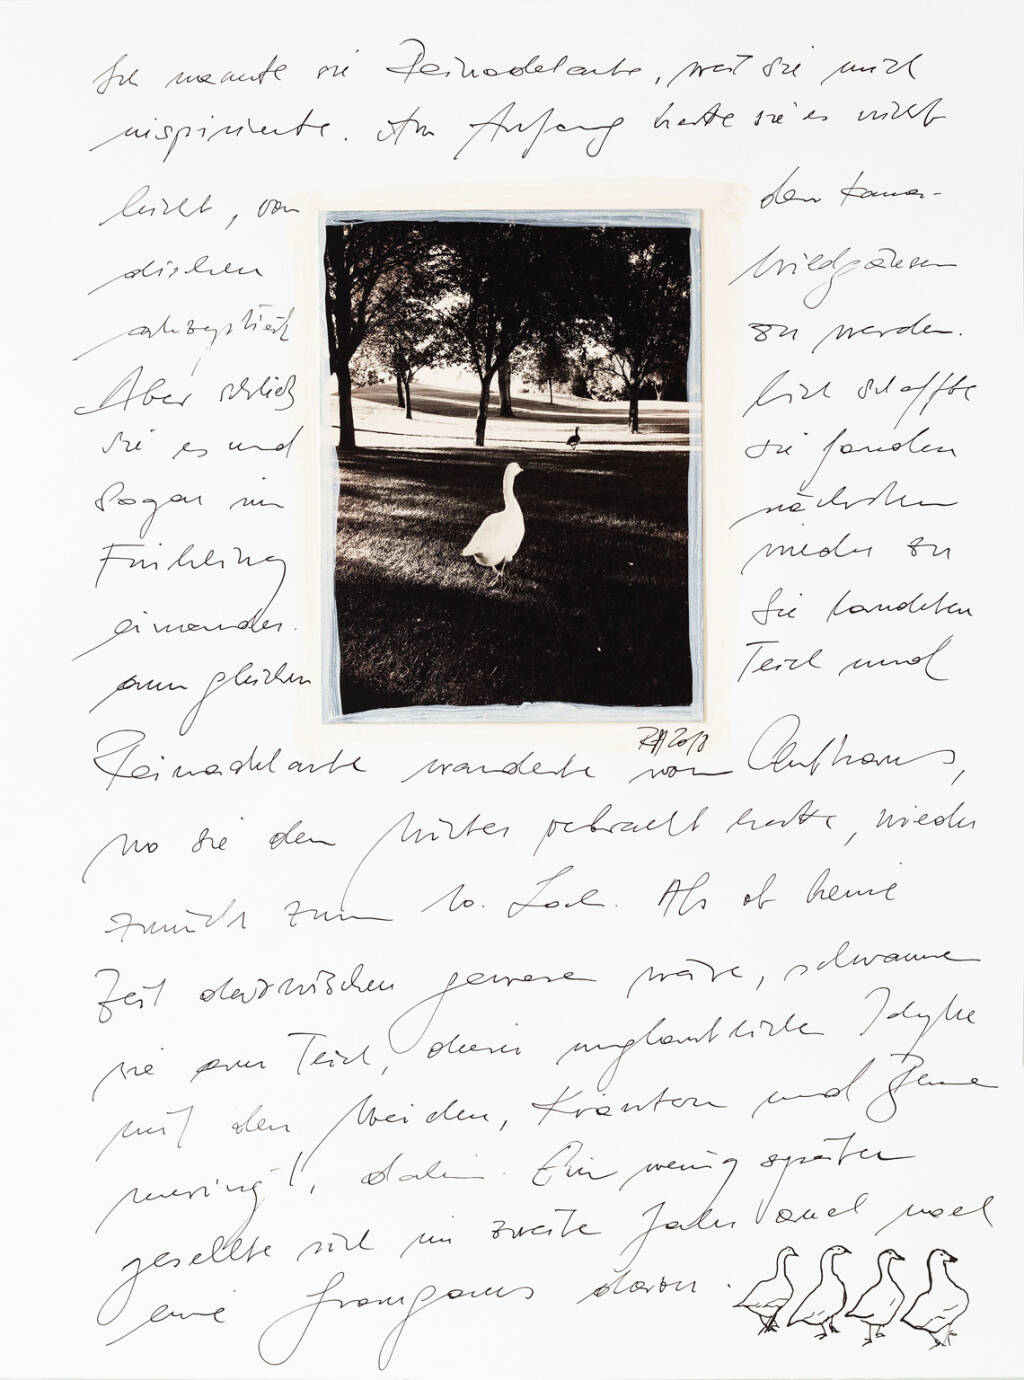 Ich nannte sie Reinadelante, weil sie mich
inspirierte. Am Anfang hatte sie es nicht
leicht, von den kana-
dischen Wildgänsen
akzeptiert zu werden.
Aber schließ lich schaffte
sie es und sie fanden
sogar im nächsten
Frühling wieder zu
einander. Sie landeten
am gleichen Teich und
Reinadelante wanderte vom Clubhaus,
wo sie den Winter verbracht hatte, wieder
zurück zum 10. Loch. Als ob keine
Zeit dazwischen gewesen wäre, schwammen
sie am Teich, dieser unglaublichen Idylle
mit den Weiden, Kräutern und
dahin. Ein wenig später
gesellte sich im zweiten Jahr auch noch
eine Graugans davon.
2018